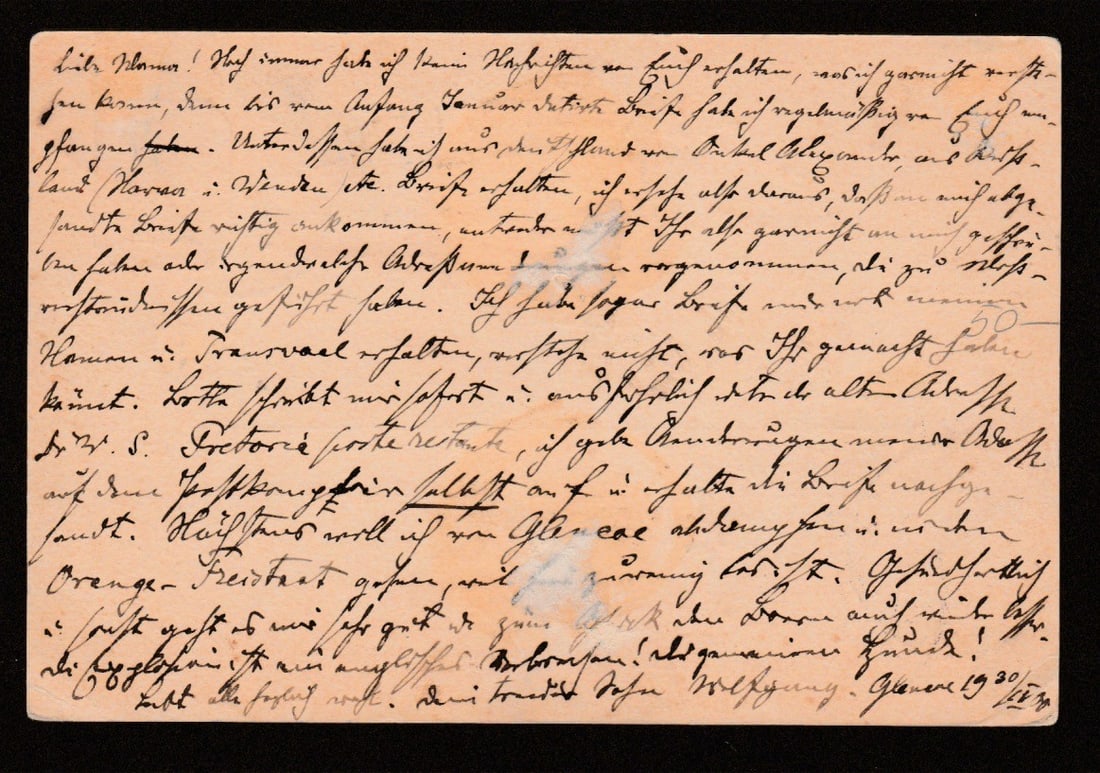 Liebe Mama! Noch immer habe ich keine Nachrichten von Euch erhalten, was ich garnicht verste-
hen kann, denn bis vom Anfang Januar datirte Briefe habe ich regelmäßig von Euch em-
pfangen haben. Unterdessen habe ich aus Deutschland von Onkel Alexander, aus Russ-
land (Narva u. Wenden) etc. Briefe erhalten, ich ersehe also daraus, daß an mich abge-
sandte Briefe richtig ankommen, entweder müßt Ihr also garnicht an mich geschrie-
ben haben oder irgendwelche Adressen vorgenommen, die zu Miß-
verständnissen geführt haben. Ich habe sogar Briefe nur mit meinem
50
Namen u. Transvaal erhalten, verstehe nicht, was Ihr gemacht haben
könnt. Bitte schreibt mir sofort u. ausführlich unter der alten Adresse
Dr W. S. Pretoria poste restante, ich gebe Aenderungen meiner Adresse
auf dem Postkomptoir selbst auf u. erhalte die Briefe nachge-
sandt. Nächstens will ich von Glencoe abdampfen u. in den
Orange-Freistaat gehen, weil hier zu wenig los ist. Gesundheitlich
u. sonst geht es mir sehr gut u. zum Glück den Boeren auch wieder besser.
Die Explosion ist ein englisches Verbrechen! Die gemeinen Hunde!
Lebt alle herzlich wohl. Dein treuer Sohn Wolfgang. Glencoe 19 30/IV 00